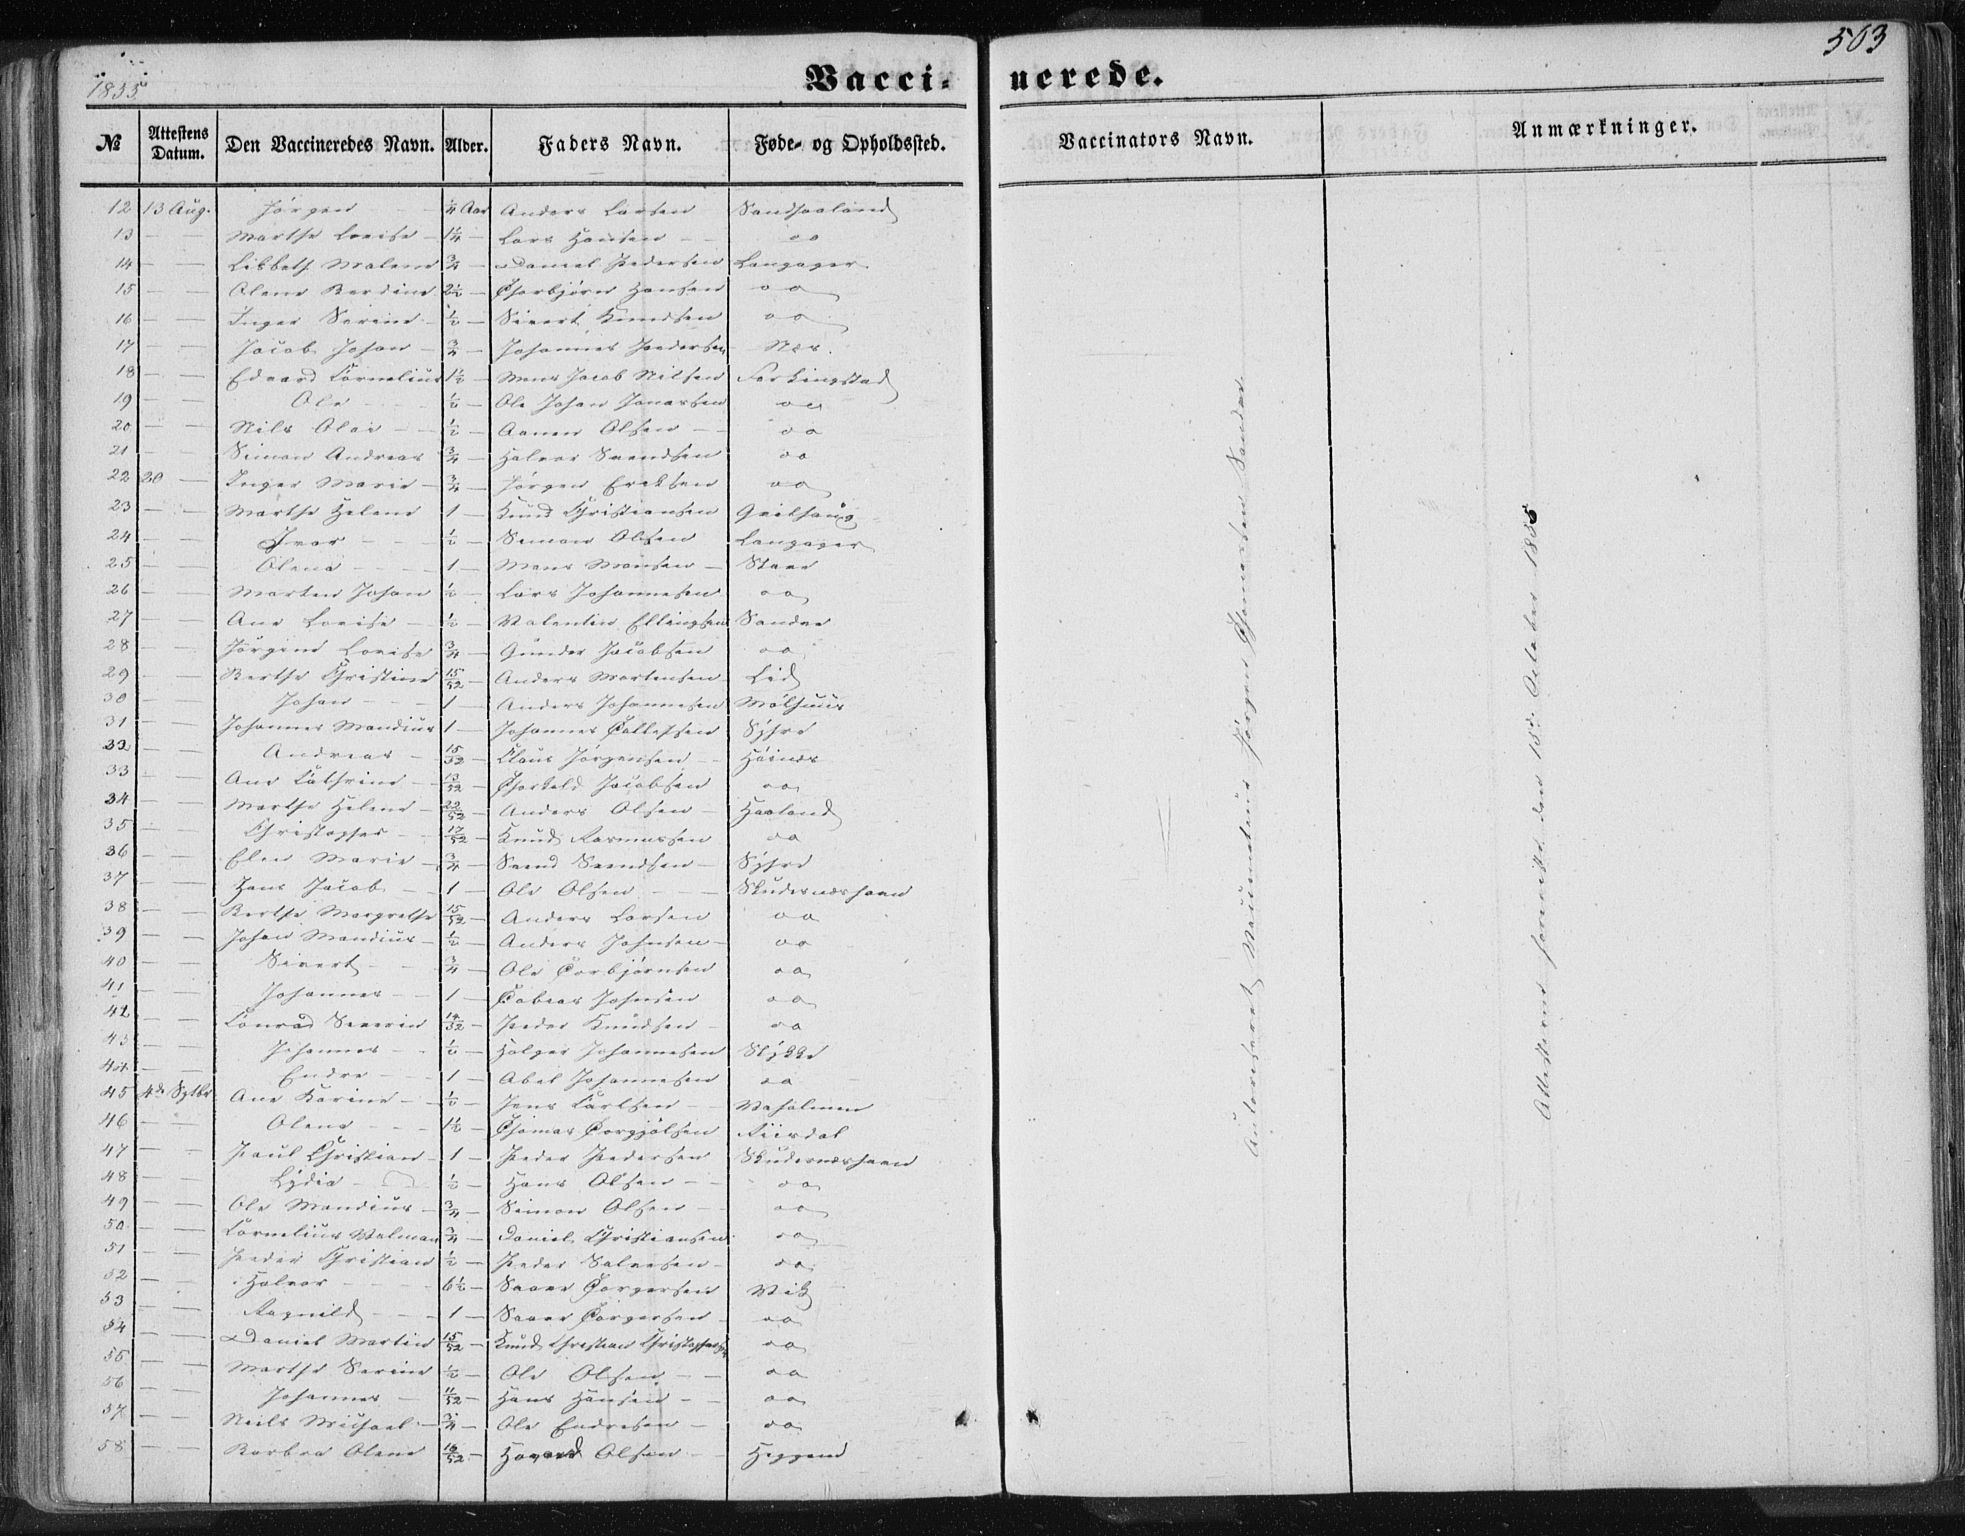 1855
503
Vacci- nerede.
№ Attestens Datum. Den Vaccineredes Navn. Alder. Faders Navn. Føde- og Opholdssted. Vaccinators Navn. Anmærkninger.
12 13 Aug. Jörgen - - ¼ Aar Anders Larsen Sandhaaland
13 - - Marthe Lovise - 1¼ - Lars Hansen - - oo
14 - - Lisbeth Malene ¾ - Daniel Pedersen Langager
15 - - Olene Berdine 2½ - Thorbjörn Hansen oo
16 - - Inger Serine - ½ - Sivert Knudsen oo
17 - - Jacob Johan - ¾ - Johannes Pedersen Næs.
18 - - Edvard Cornelius 1½ - Mons Jacob Nilsen Ferkingstad
19 - - Ole - - ½ - Ole Johan Jonassen oo
20 - - Nils Olai - - ½ - Aanen Olsen - - oo
21 - - Simon Andreas ¾ - Halvor Svendsen oo
22 20 - Inger Marie - ¾ - Jörgen Eriksen oo
23 - - Marthe Helene 1 - Knud Christiansen Qvilhaug
24 - - Ivar - - ½ - Simon Olsen Langager
25 - - Olena - - 1 - Mons Monsen - Stave
26 - - Marten Johan ½ - Lars Johannesen oo
27 - - Ane Lovise - ½ - Valentin Ellingsen Sandve
28 - - Jörgine Lovise ¾ - Gunder Jacobsen oo
29 - - Berthe Christine 15/52 - Anders Mortensen Lid
30 - - Johan - - 1 - Anders Johannesen Mölhuus
31 - - Johannes Mandius 1 - Johannes Tollefsen Syhre
32 - - Andreas - 15/52 - Claus Jörgensen - - Höinæs
33 - - Ane Cathrine - 13/52 - Thorkeld Jacobsen oo
34 - - Marthe Helene - 22/52 - Anders Olsen - Haaland
35 - - Christopher - - 17/52 - Knud Rasmussen oo
36 - - Elen Marie - ¾ - Svend Svendsen - Syhre
37 - - Hans Jacob - - 1 - Ole Olsen - - - Skudesnæshavn
38 - - Berthe Margrethe 15/52 - Anders Larsen - oo
39 - - Johan Mandius - ½ - Anders Johnsen - oo
40 - - Sivert - - ¾ - Ole Torbjörnsen oo
41 - - Johannes - - 1 - Tobias Johnsen oo
42 - - Conrad Severin 14/52 - Peder Knudsen - oo
43 - - Johannes - - ½ - Holger Johannesen Stykke
44 - - Endre - - 1 - Abel Johannesen oo
45 4de Sptbr Ane Karine - - ½ - Jens Carlsen - - Vaholmen
46 - - Olene - - - 1½ - Thomas Torgjölsen
47 - - Paul Christian - 1 - Peder Pedersen Skudesnæshavn
48 - - Lydia - ½ - Hans Olsen - - oo
49 - - Ole Mandius - ¾ - Simon Olsen - - oo
50 - - Cornelius Valman ¾ - Daniel Christiansen oo
51 - - Peder Christian ½ - Peder Salvesen - oo
52 - - Halvor - - - 6½ - Saave Torgersen Vik
53 - - Ragnild - - 1 - Saave Torgersen - oo
54 - - Daniel Martin 15/52 - Knud Christian Christophersen oo
55 - - Marthe Serine ½ - Ole Olsen - - oo
56 - - Johannes - 11/52 - Hans Hansen - oo
57 - - Neils Michael - ¾ - Ole Endresen - oo
58 - - Barbra Olene 16/52 - Havard Olsen - - Heggem
Autoriseret Jörgen Thomassen Sandve.
Attesterne forevist den 15de October 1855